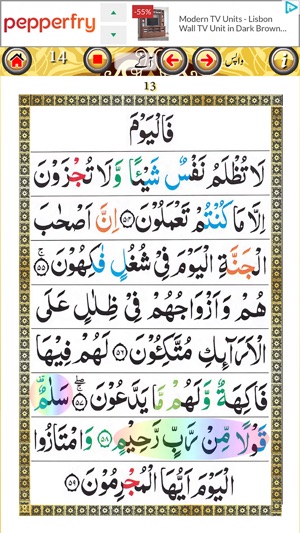 pepperfry
-55%
Modern TV Units - Lisbon
Wall TV Unit in Dark Brown...
14
آگے
واپس
13
فَالْيَوْمَ
لَا تُظْلَمُ نَفْسٌ شَيْـًٔا وَّلَا تُجْزَوْنَ
اِلَّا مَا كُنْتُمْ تَعْمَلُوْنَ ۵۴ اِنَّ اَصْحٰبَ
الْجَنَّةِ الْيَوْمَ فِيْ شُغُلٍ فٰكِهُوْنَ ۵۵ ۚ
هُمْ وَ اَزْوَاجُهُمْ فِيْ ظِلٰلٍ عَلَى
الْاَرَآىِٕكِ مُتَّكِـُٔوْنَ ۵۶ لَهُمْ فِيْهَا
فَاكِهَةٌ وَّلَهُمْ مَّا يَدَّعُوْنَ ۵۷ ۖۚ سَلٰمٌ ۫
قَوْلًا مِّنْ رَّبٍّ رَّحِيْمٍ ۵۸ وَ امْتَازُوا
الْيَوْمَ اَيُّهَا الْمُجْرِمُوْنَ ۵۹